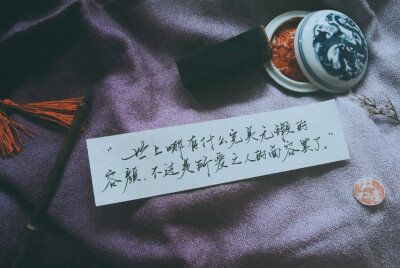 “世上哪有什么完美无瑕的
容颜，不过是所爱之人的面容罢了。”